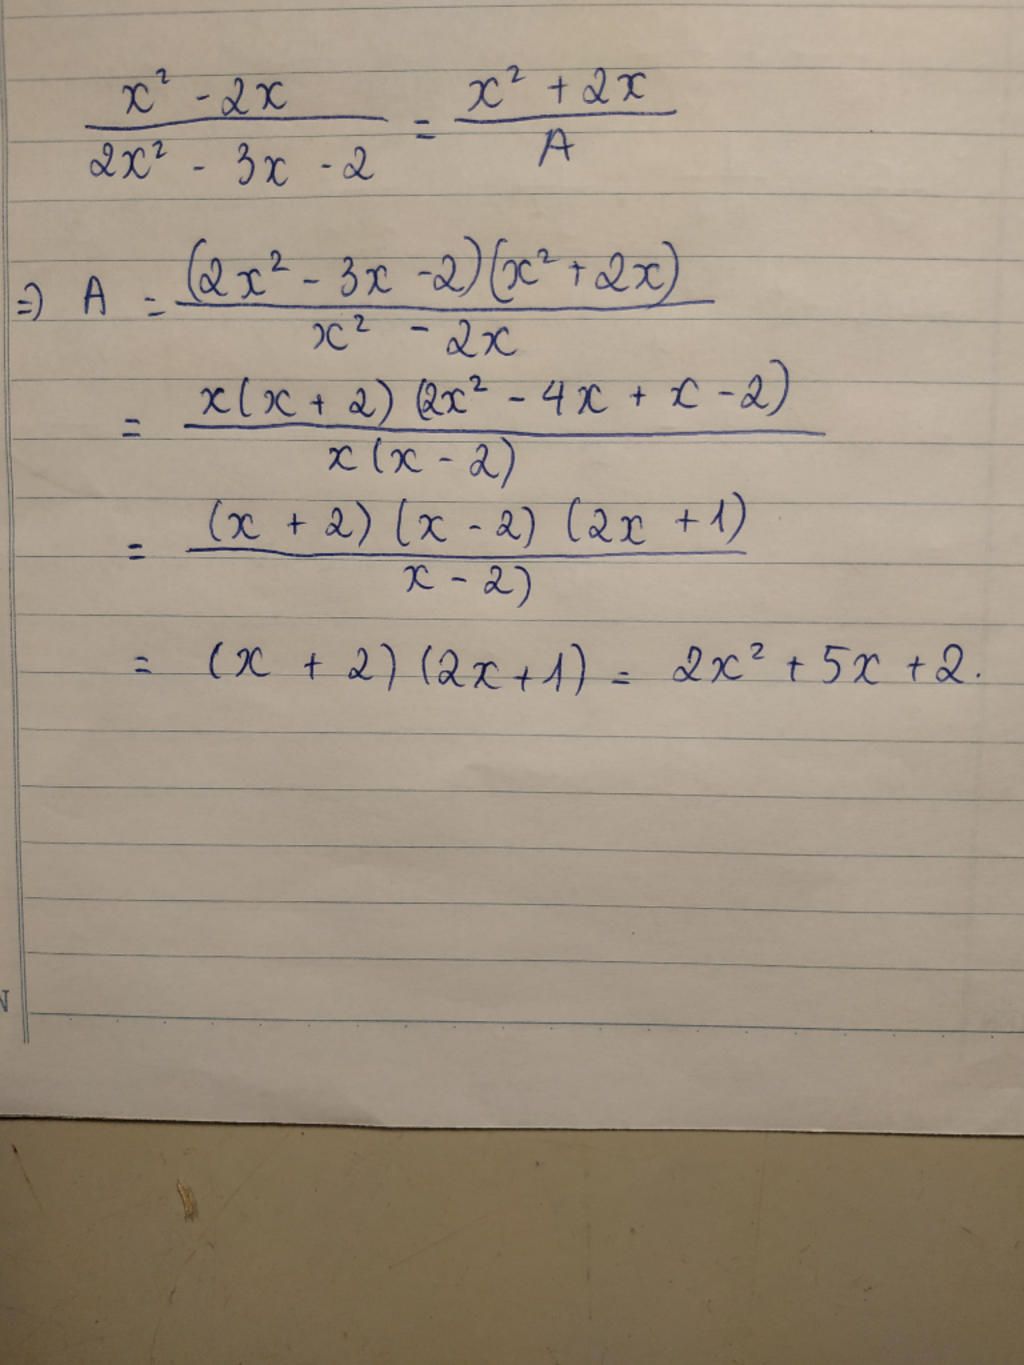 x² - 2x / 2x² - 3x - 2 = x² + 2x / A
=> A = (2x² - 3x - 2)(x² + 2x) / x² - 2x
= x(x + 2)(2x² - 4x + x - 2) / x(x - 2)
= (x + 2)(x - 2)(2x + 1) / x - 2)
= (x + 2)(2x + 1) = 2x² + 5x + 2.
N